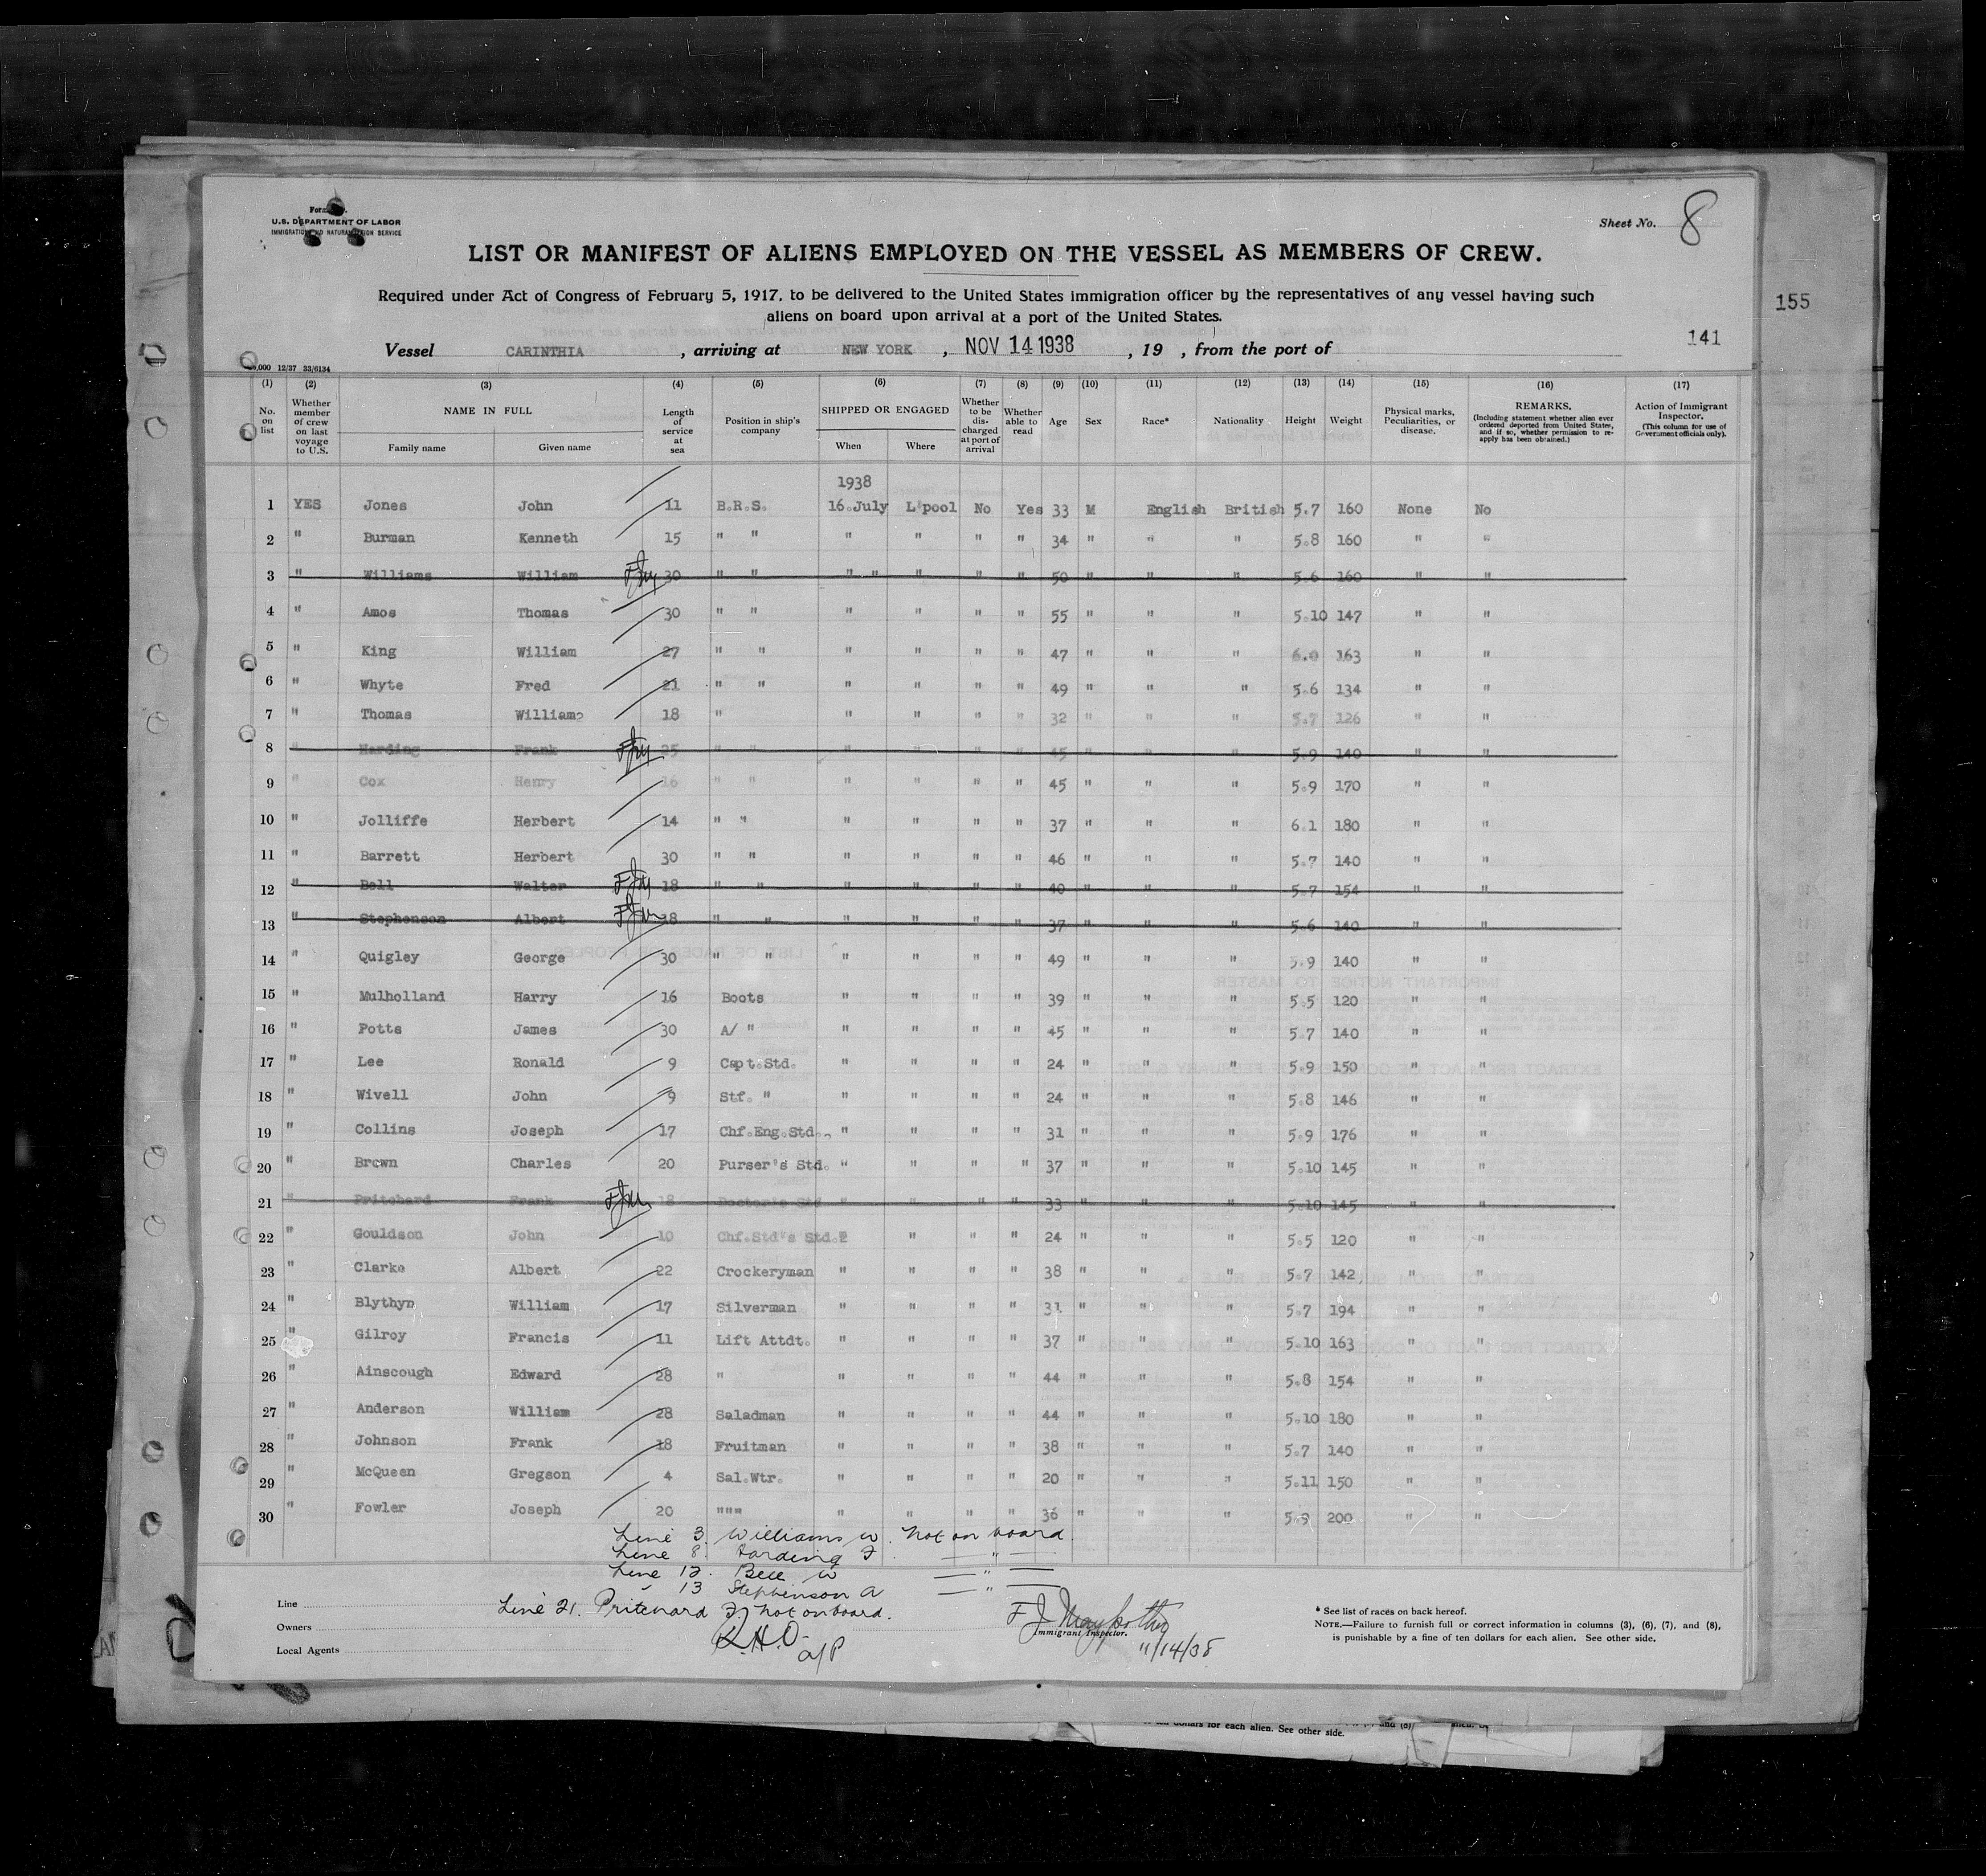 Form
U.S. DEPARTMENT OF LABOR
IMMIGRATION AND NATURALIZATION SERVICE
Sheet No. 8
LIST OR MANIFEST OF ALIENS EMPLOYED ON THE VESSEL AS MEMBERS OF CREW.
Required under Act of Congress of February 5, 1917, to be delivered to the United States immigration officer by the representatives of any vessel having such
aliens on board upon arrival at a port of the United States.
155
141
Vessel CARINTHIA , arriving at NEW YORK , NOV 14 1938 , 19 , from the port of
,000 12/37 33/6134
(1) (2) (3) (4) (5) (6) (7) (8) (9) (10) (11) (12) (13) (14) (15) (16) (17)
No. on list
Whether member of crew on last voyage to U.S.
NAME IN FULL
Family name
Given name
Length of service at sea
Position in ship's company
SHIPPED OR ENGAGED
When
Where
Whether to be discharged at port of arrival
Whether able to read
Age
Sex
Race*
Nationality
Height
Weight
Physical marks, Peculiarities, or disease.
REMARKS.
(Including statement whether alien ever ordered deported from United States, and if so, whether permission to reapply has been obtained.)
Action of Immigrant Inspector.
(This column for use of Government officials only).
1938
1 YES Jones John 11 B.R.S. 16.July L'pool No Yes 33 M English British 5.7 160 None No
2 " Burman Kenneth 15 " " " " " " 34 " " " 5.8 160 " "
3 " Williams William FJM 30 " " " " " " " 50 " " " 5.6 160 " "
4 " Amos Thomas 30 " " " " " " 55 " " " 5.10 147 " "
5 " King William 27 " " " " " " 47 " " " 6.0 163 " "
6 " Whyte Fred 21 " " " " " " 49 " " " 5.6 134 " "
7 " Thomas William 18 " " " " " 32 " " " 5.7 126 " "
8 " Harding Frank FJM 25 " " " " " " 45 " " " 5.9 140 " "
9 " Cox Henry 16 " " " " " " 45 " " " 5.9 170 " "
10 " Jolliffe Herbert 14 " " " " " " 37 " " " 6.1 180 " "
11 " Barrett Herbert 30 " " " " " " 46 " " " 5.7 140 " "
12 " Bell Walter FJM 18 " " " " " " 40 " " " 5.7 154 " "
13 " Stephenson Albert FJM 18 " " " " " " 37 " " " 5.6 140 " "
14 " Quigley George 30 " " " " " " 49 " " " 5.9 140 " "
15 " Mulholland Harry 16 Boots " " " " 39 " " " 5.5 120 " "
16 " Potts James 30 A/ " " " " " 45 " " " 5.7 140 " "
17 " Lee Ronald 9 Capt.Std. " " " " 24 " " " 5.9 150 " "
18 " Wivell John 9 Stf. " " " " " 24 " " " 5.8 146 " "
19 " Collins Joseph 17 Chf.Eng.Std. " " " " 31 " " " 5.9 176 " "
20 " Brown Charles 20 Purser's Std. " " " " 37 " " " 5.10 145 " "
21 " Pritchard Frank FJM 18 Doctor's Std " " " " 33 " " " 5.10 145 " "
22 " Gouldson John 10 Chf.Std's Std." " " " 24 " " " 5.5 120 " "
23 " Clarke Albert 22 Crockeryman " " " " 38 " " " 5.7 142 " "
24 " Blythyn William 17 Silverman " " " " 31 " " " 5.7 194 " "
25 " Gilroy Francis 11 Lift Attdt. " " " " 37 " " " 5.10 163 " "
26 " Ainscough Edward 28 " " " " " 44 " " " 5.8 154 " "
27 " Anderson William 28 Saladman " " " " 44 " " " 5.10 180 " "
28 " Johnson Frank 18 Fruitman " " " " 38 " " " 5.7 140 " "
29 " McQueen Gregson 4 Sal.Wtr. " " " " 20 " " " 5.11 150 " "
30 " Fowler Joseph 20 """ " " " " 36 " " " 5.9 200 " "
Line 3. Williams W. not on board.
Line 8. Harding F — " —
Line 12. Bell W — " —
" 13 Stephenson A — " —
Line 21. Pritchard F. not on board.
K.H.O.
a/P
Line
Owners
Local Agents
F J
Immigrant Inspector.
11/14/38
* See list of races on back hereof.
NOTE.—Failure to furnish full or correct information in columns (3), (6), (7), and (8),
is punishable by a fine of ten dollars for each alien. See other side.
ten dollars for each alien. See other side.